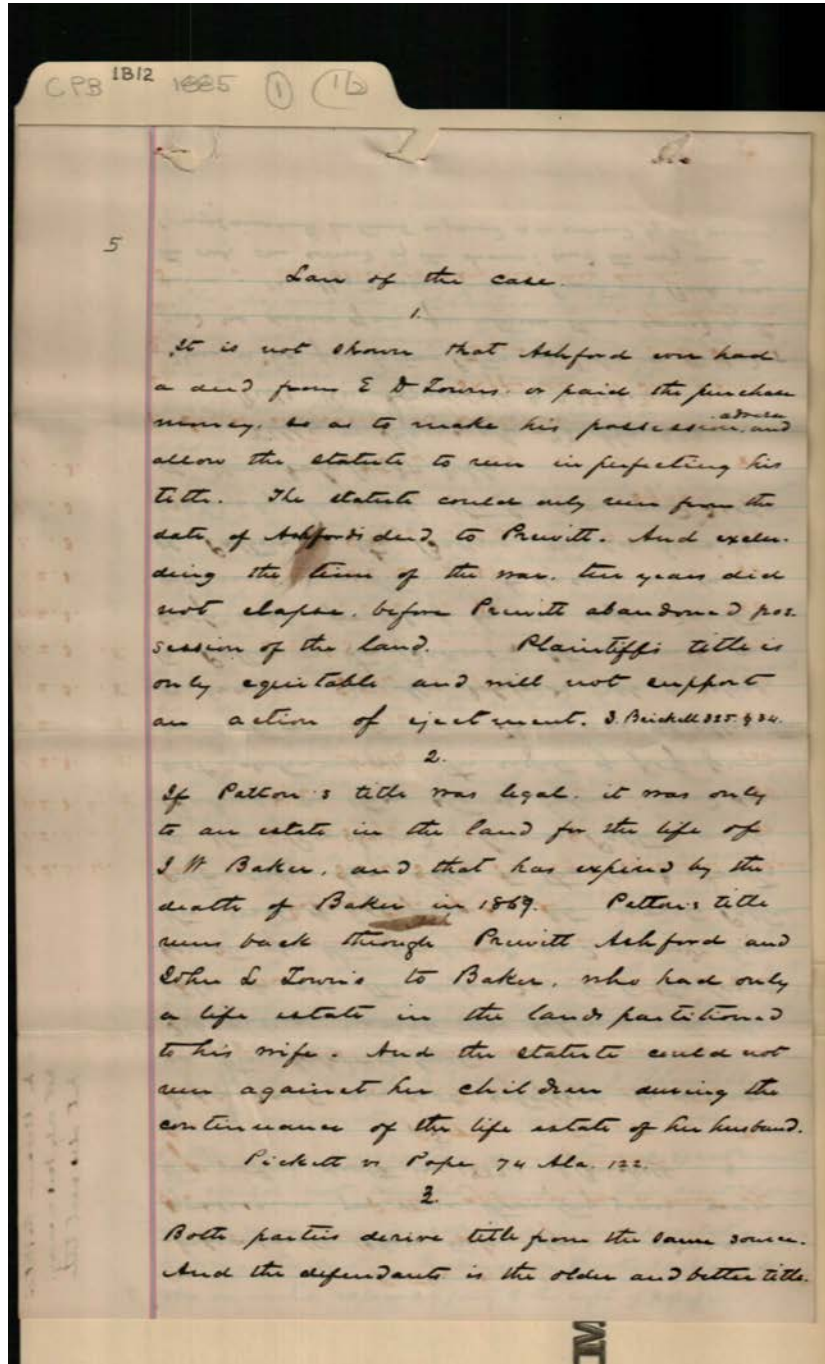 CPB 1B12 1885 1 1b
5
Law of the case.
1.
It is not shown that Ashford ever had
a deed from E D Townes. or paid the purchase
money. so as to make his possession adverse and
allow the statute to run in perfecting his
title. The statute could only run from the
date of Ashfords deed to Prewitt. And exclu-
ding the time of the war. ten years did
not elapse. before Prewitt abandoned pos-
session of the land. Plaintiffs title is
only equitable and will not support
an action of ejectment. Brickell 325. § 34.
2.
If Patton's title was legal. it was only
to an estate in the land for the life of
J W Baker, and that has expired by the
death of Baker in 1869. Patton's title
runs back through Prewitt Ashford and
John L Townes to Baker, who had only
a life estate in the lands partitioned
to his wife. And the statute could not
run against her children during the
continuance of the life estate of her husband.
Pickett vs Pope 74 Ala. 122.
3.
Both parties derive title from the same source.
And the defendants is the older and better title.